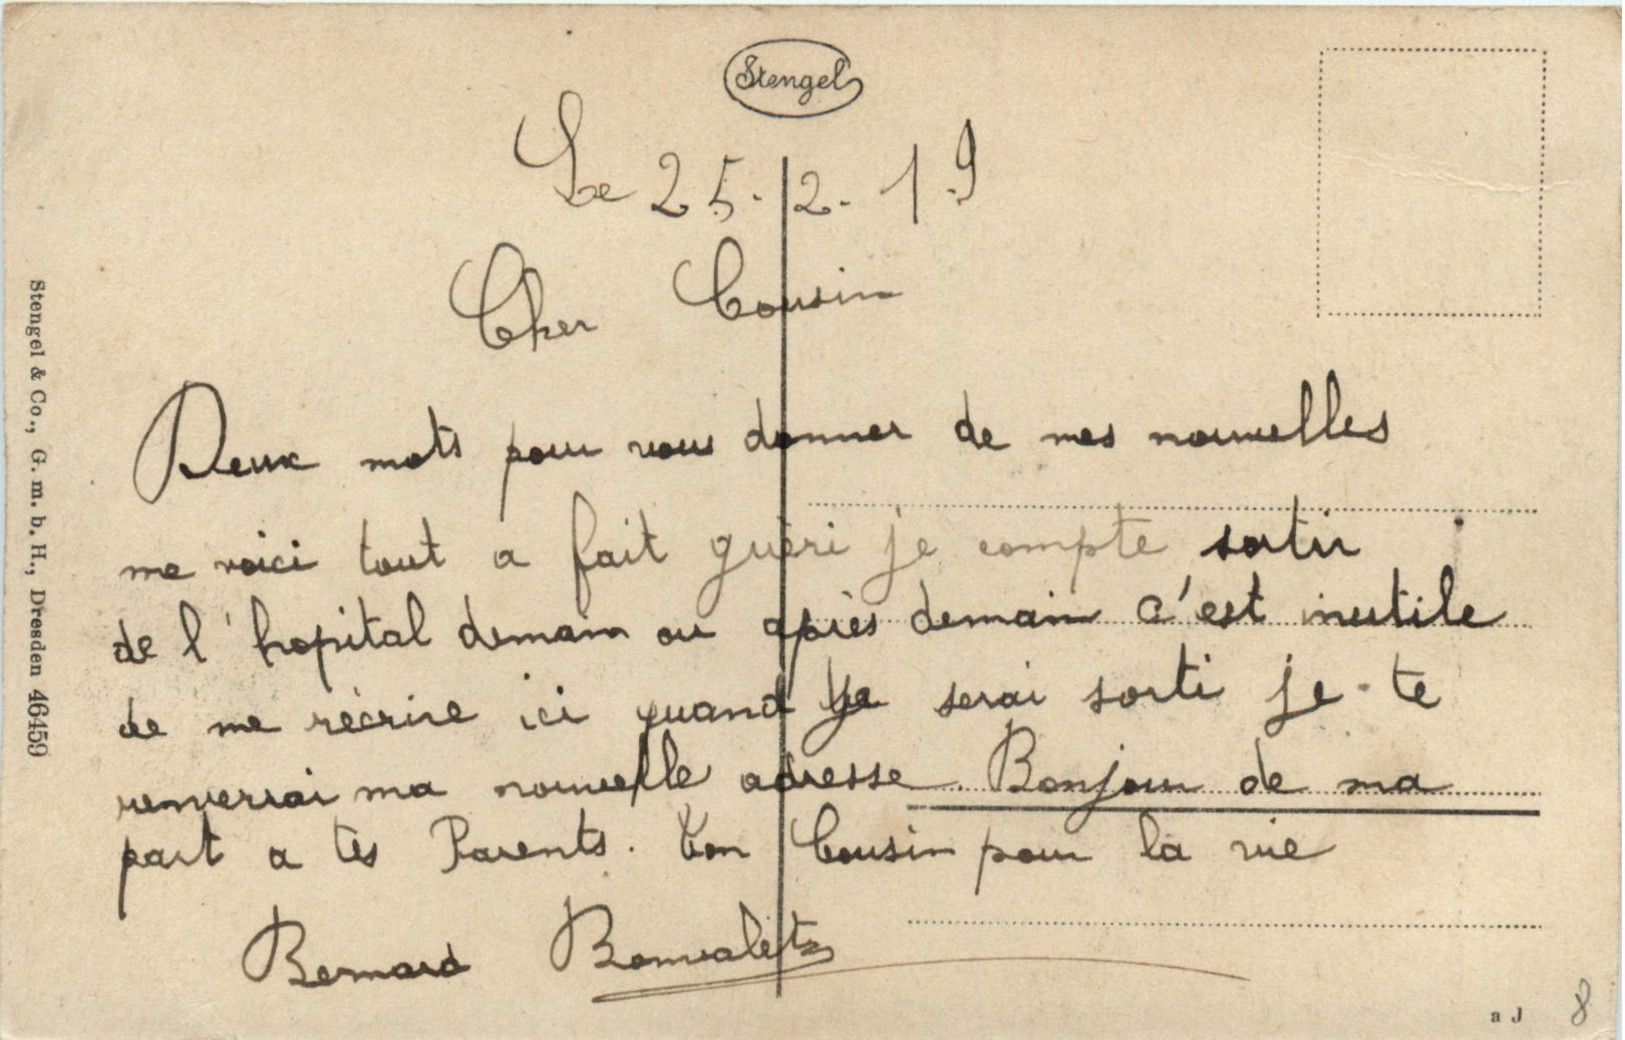 Stengel
Le 25.2.19
Cher Cousin
Deux mots pour vous donner de mes nouvelles
me voici tout a fait guèri je compte sortir
de l'hopital demain ou après demain c'est inutile
de me récrire ici quand je serai sorti je te
renverrai ma nouvelle adresse. Bonjour de ma
part a tes Parents. Ton Cousin pour la vie
Bernard
Stengel & Co., G. m. b. H., Dresden 46459
a J
8